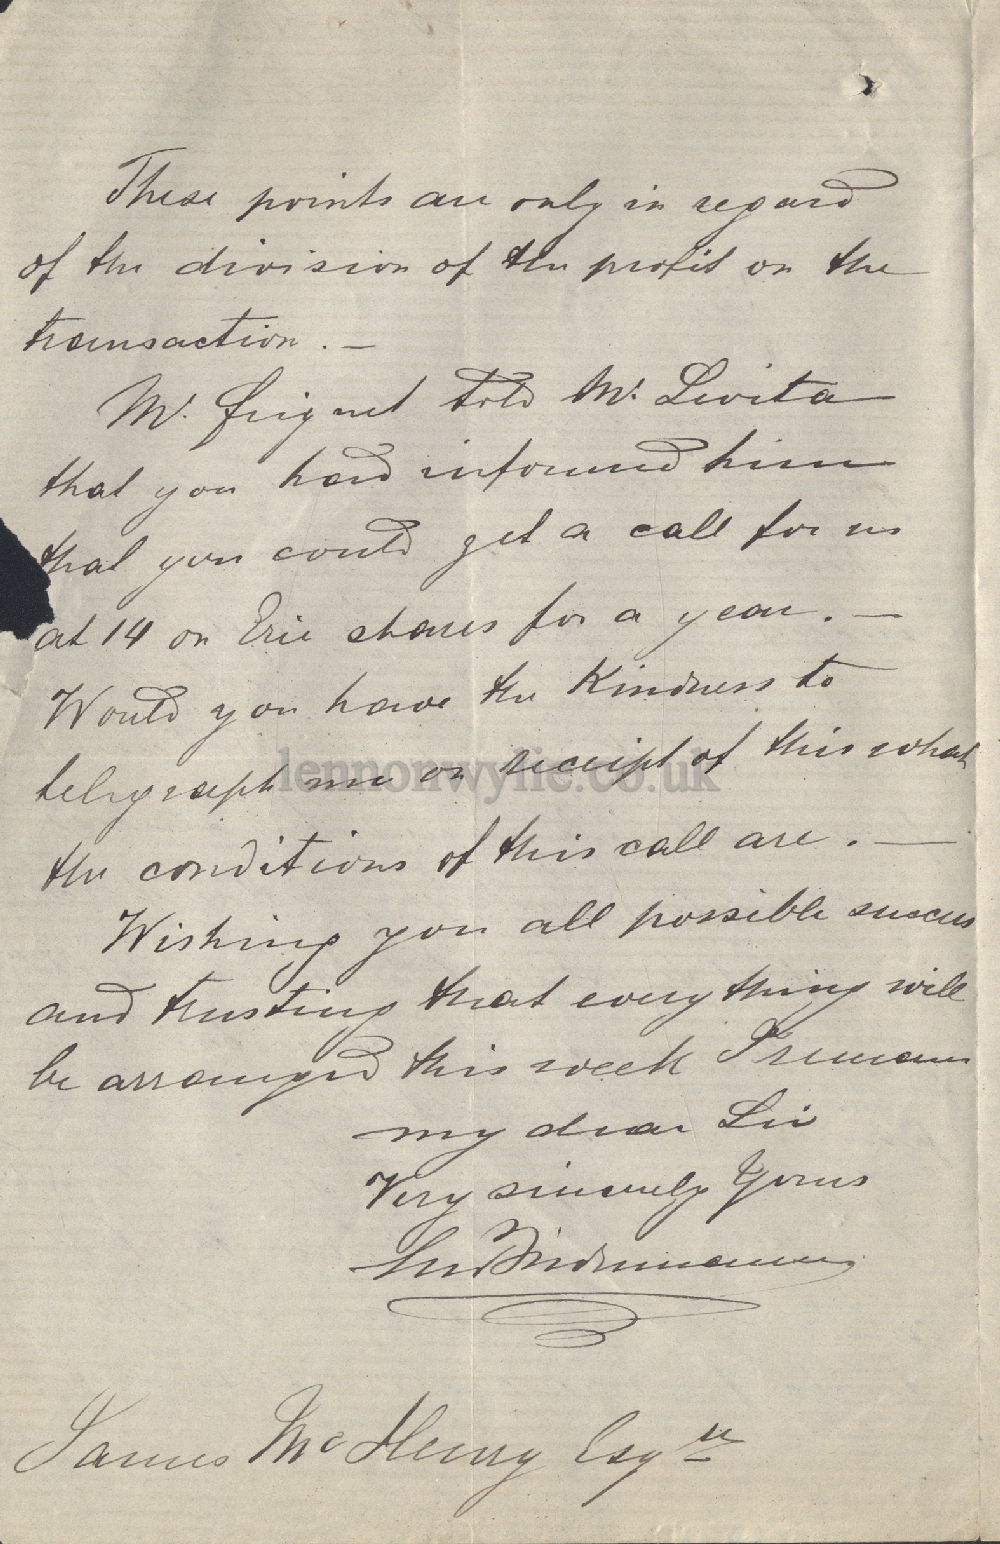 These points are only in regard
of the division of the profit on the
transaction. —
Mr. told Mr. Levita
that you had informed him
that you could get a call for us
at 14 on Erie shares for a year. —
Would you have the Kindness to
telegraph me on receipt of this what
the conditions of this call are. —
Wishing you all possible success
and trusting that every thing will
be arranged this week I remain
my dear Sir
Very sincerely Yours
James McHenry Esqre
lennonwylie.co.uk